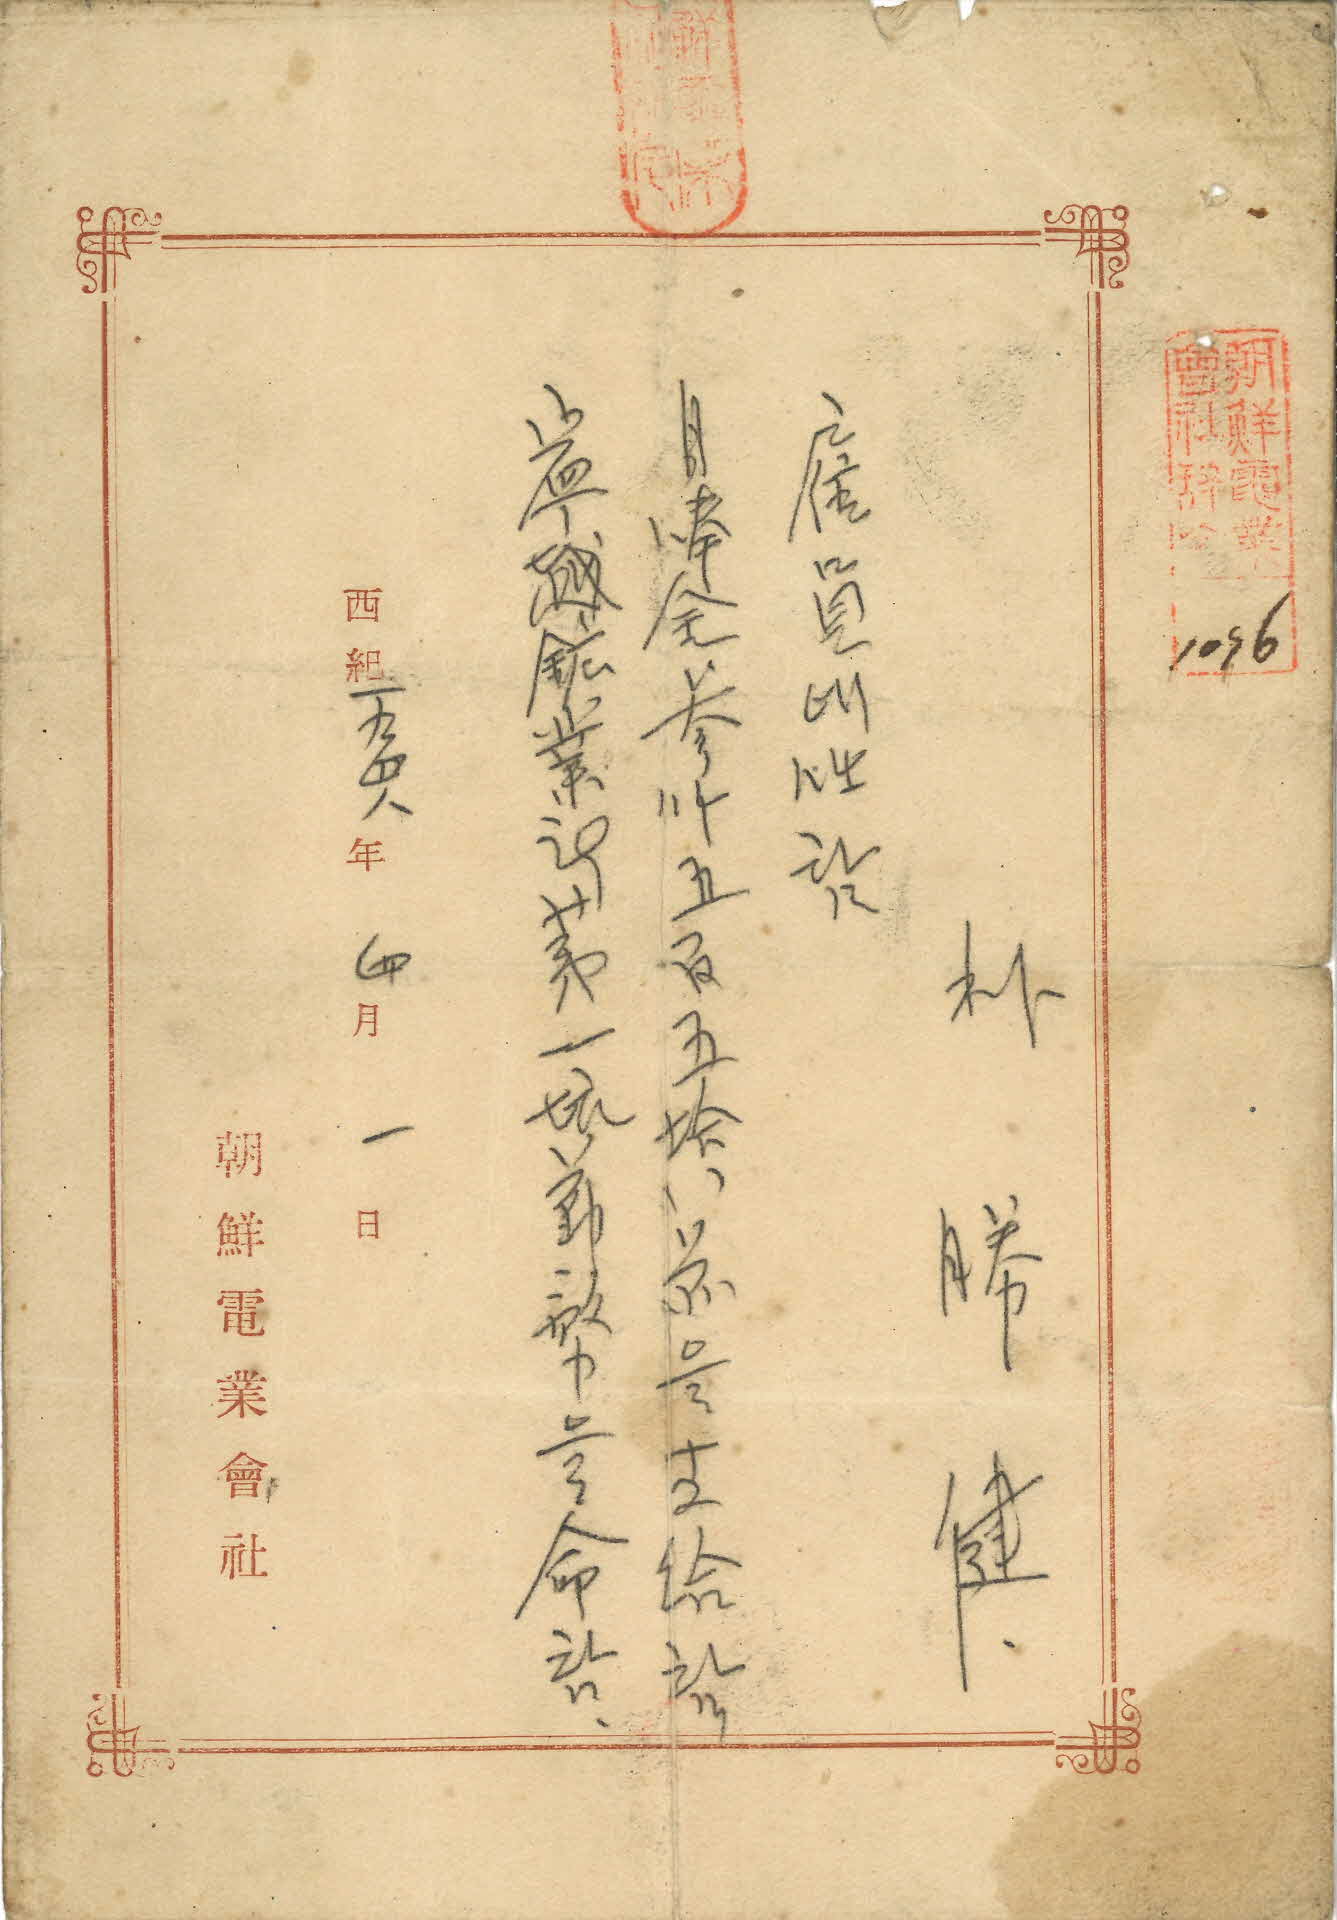 朝鮮電業
會社辞令
1096
朴勝健
雇員에任함
月俸金參仟五百五拾八圓을支給함
寧越鑛業所第一坑勤務를命함
西紀一九四八年四月一日
朝鮮電業會社